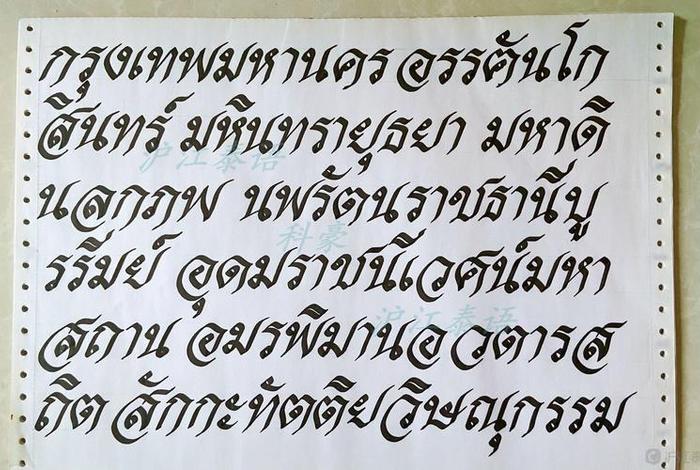 กรุงเทพมหานคร อรรตันโก
สินทร์ มหินทรายุธยา มหาดิ
沪江泰语
นลกภพ นพรัตนราชธานีบู
科豪
รริมย์ อุดมราชนิเวศน์มหา
沪江泰语
สถาน อมรพิมานอวตารส
ถิต สักกะทัตติยวิษณุกรรม